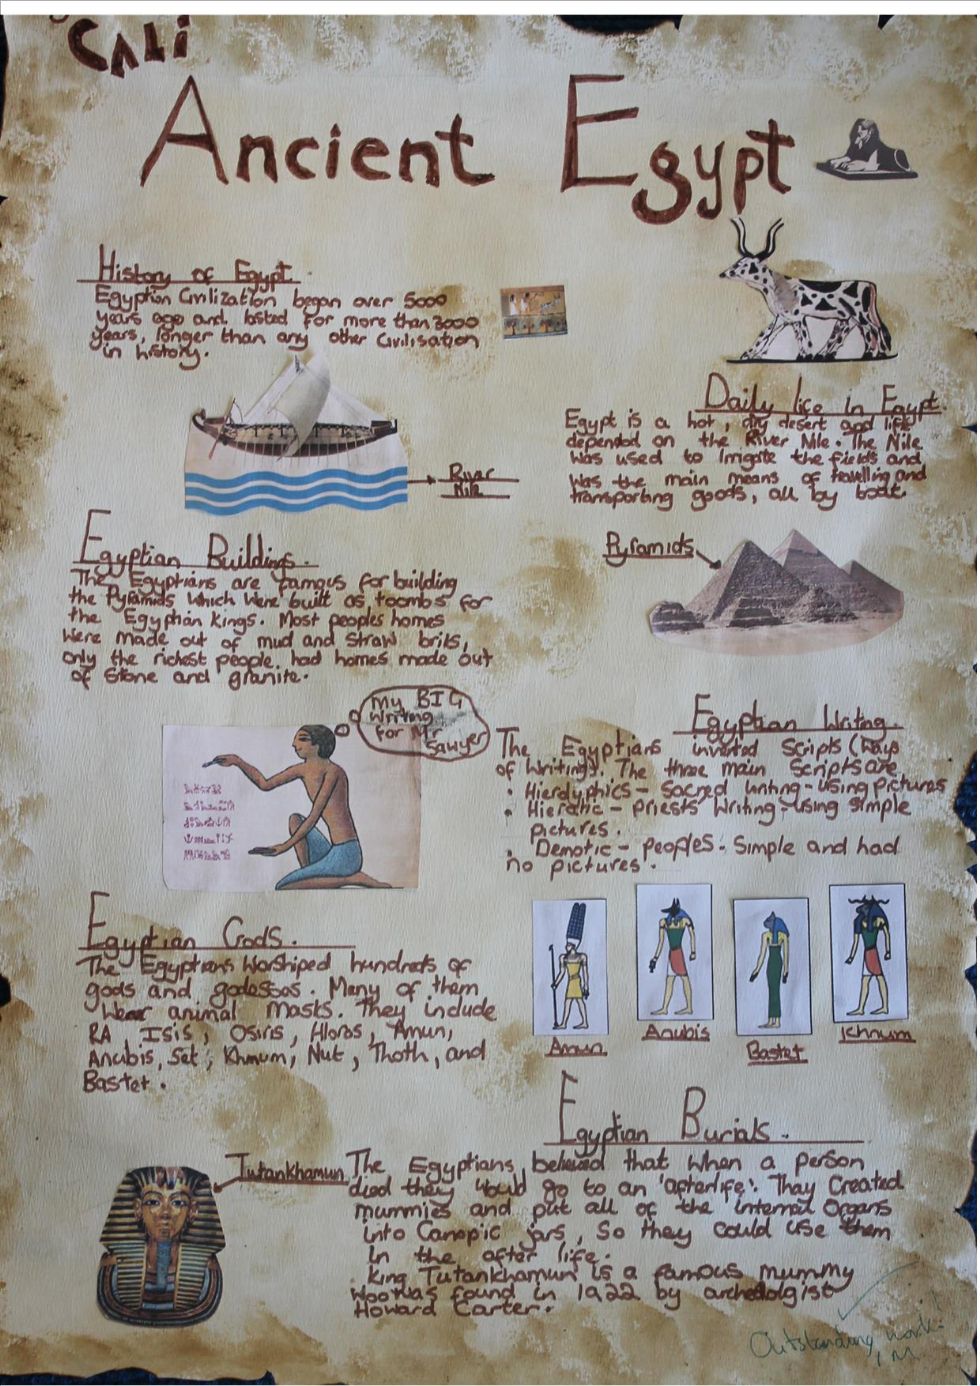 CALI
Ancient Egypt
History of Egypt.
Egyptian Civilization began over 5000
years ago and lasted for more than 3000
years, longer than any other civilisation
in history.
River
Nile
Daily life in Egypt.
Egypt is a hot, dry desert and life
depended on the River Nile. The Nile
was used to Irrigate the fields and
was the main means of travelling and
transporting goods, all by boat.
Egyptian Buildings.
The Egyptians are famous for building
the Pyramids which were built as toombs for
the Egyptian Kings. Most peoples homes
were made out of mud and straw briks,
only the richest people had homes made out
of stone and granite.
Pyramids
My BIG
writing
for Mr
Sawyer
Egyptian Writing.
The Egyptians invented scripts (ways
of writing). The three main scripts are
• Hierdyphics - sacred writing - using pictures
• Hieratic - priests writing - using simple
pictures.
• Demotic - peoples - simple and had
no pictures.
Egyptian Gods.
The Egyptians worshiped hundreds of
gods and godesses. Many of them
wear animal masks. They include
RA Isis, Osiris, Horos, Amun,
Anubis, Set, Khnum, Nut, Thoth, and
Bastet.
Amun
Anubis
Bastet
Khnum
Egyptian Burials.
Tutankhamun
The Egyptians believed that when a person
died they would go to an 'afterlife'. Thay created
mummies and put all of the internal Organs
into Canopic jars, So they could use them
in the after life.
King Tutankhamun is a famous mummy
woo was found in 1922 by archeologist
Howard Carter.
Outstanding work!